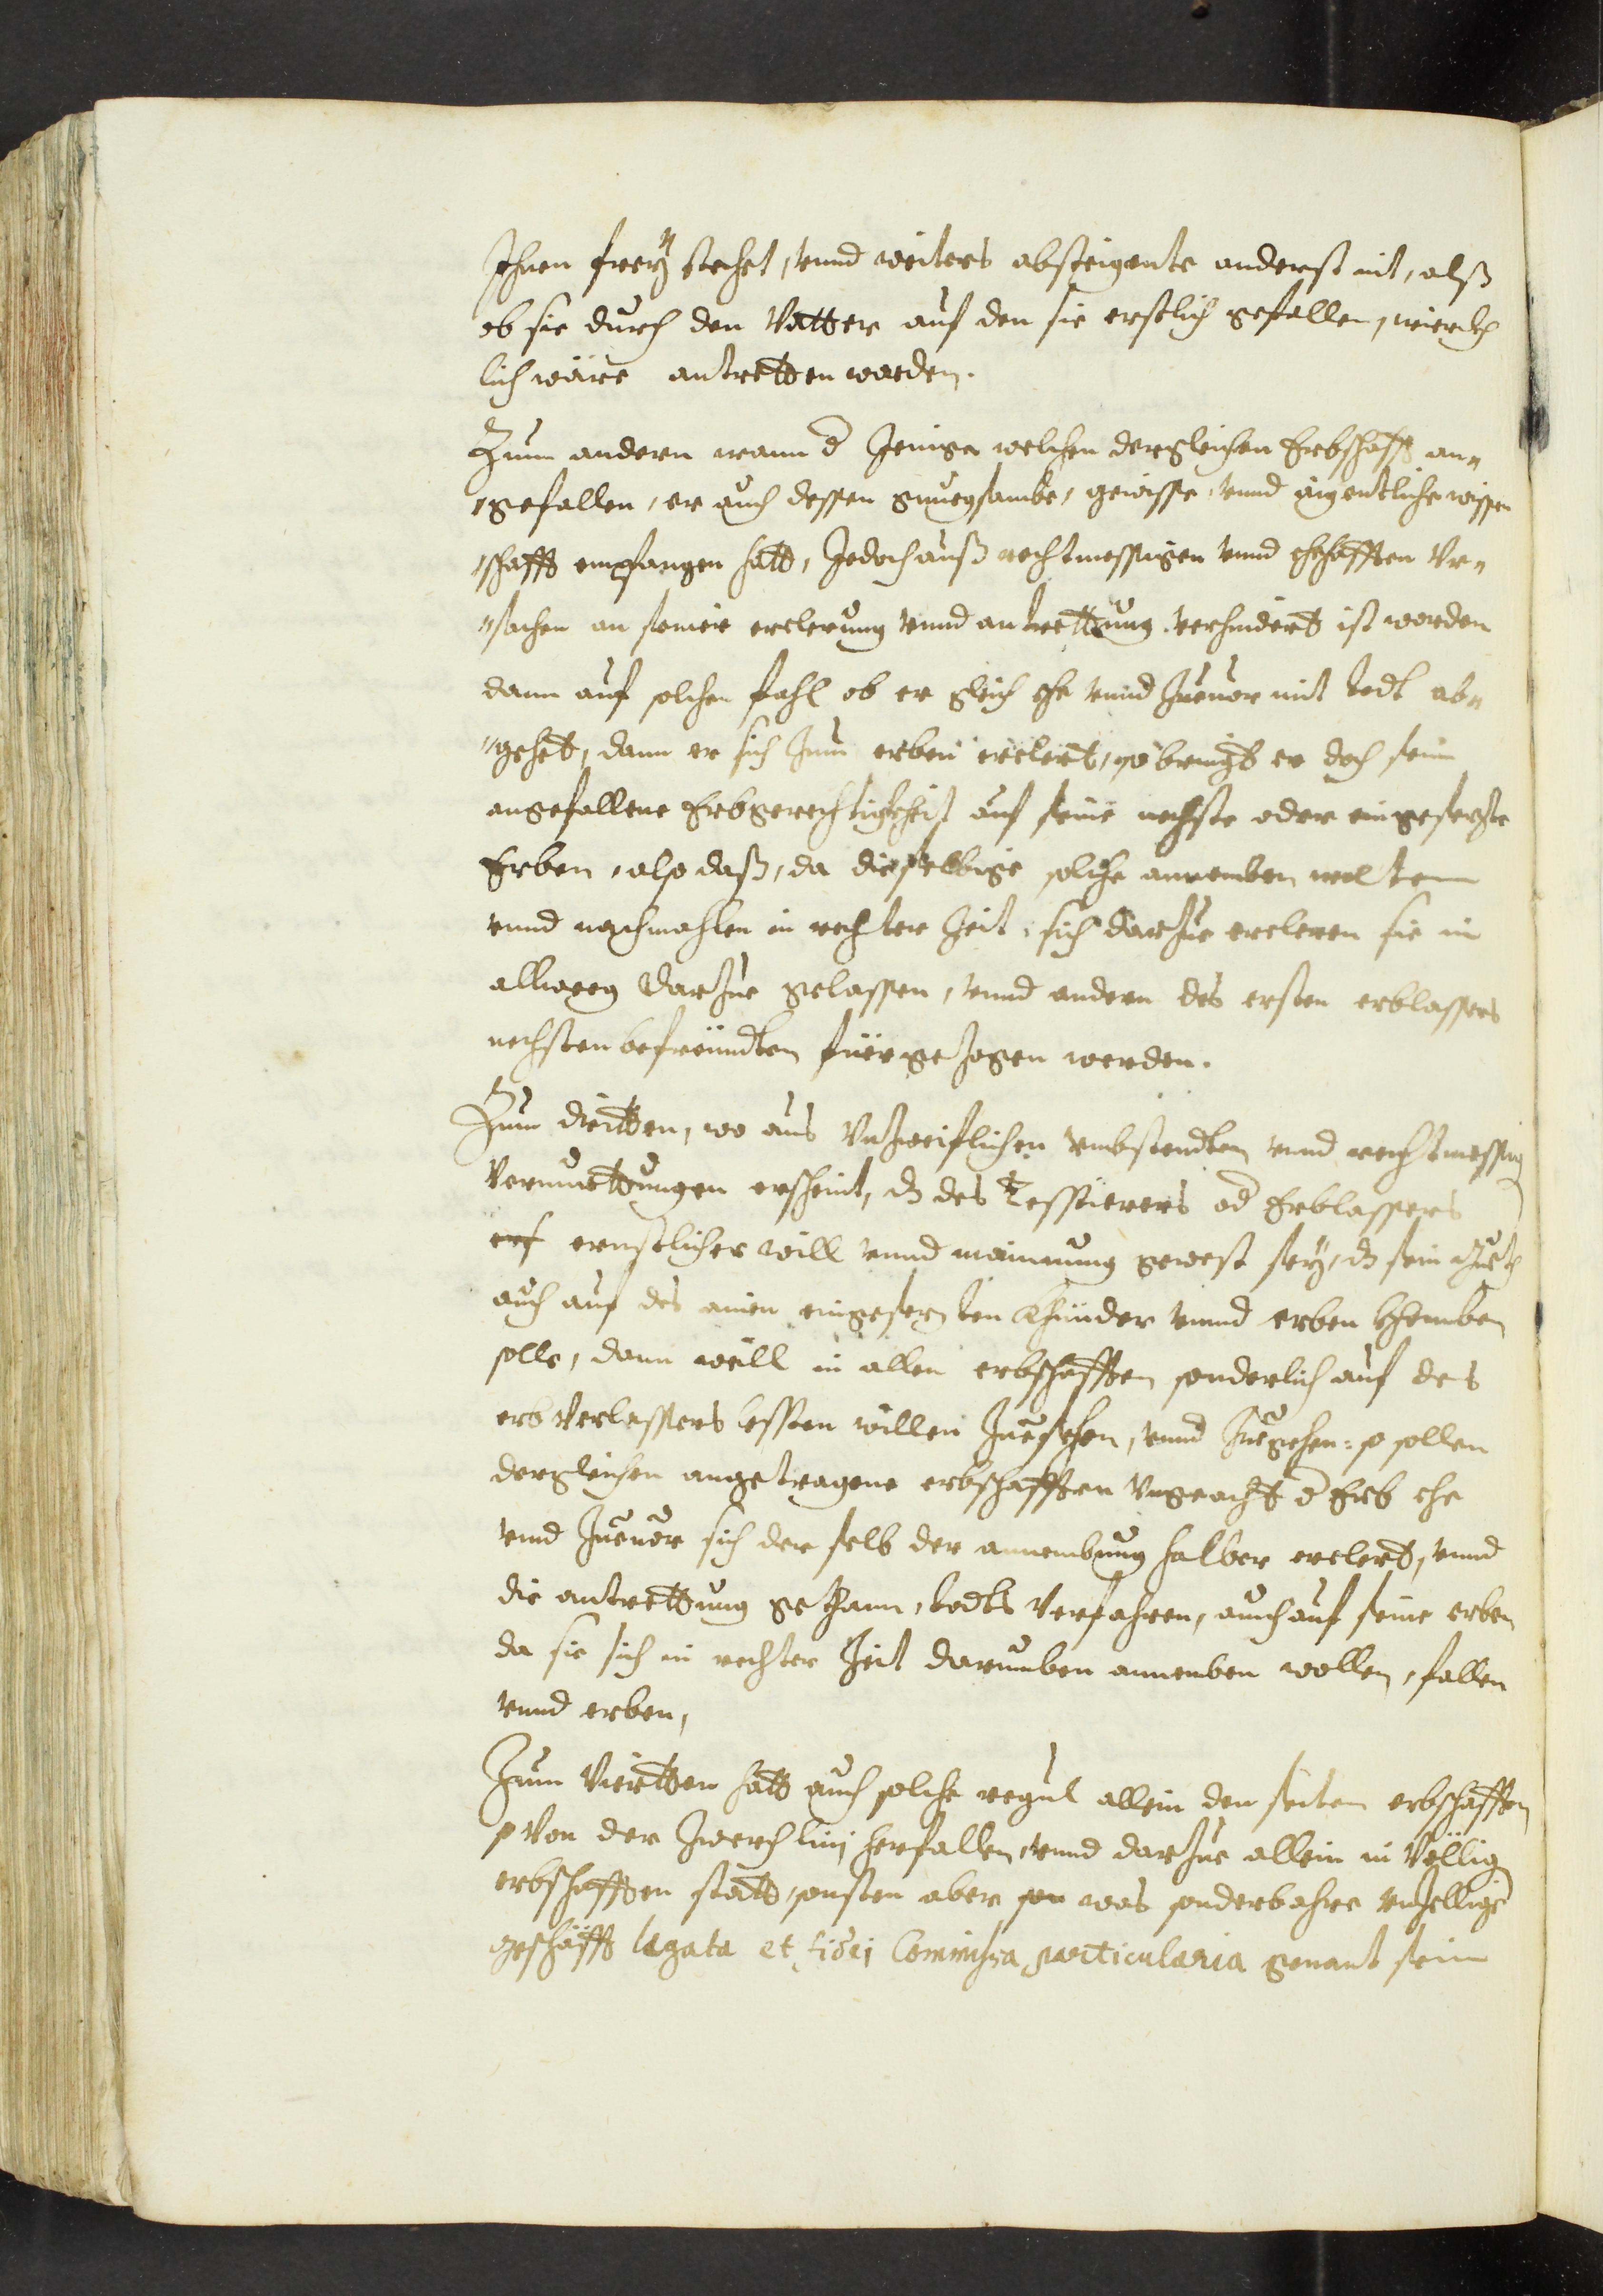 Ihnen frey stehet, vnnd weiters absteigente anderst nit, alß
ob sie durch den Vatter auf den sie erstlich gefallen,
lich wäre antretten worden.
Zum andern wann d Jenige welchen dergleichen Erbschafft an„
„gefallen, er auch dessen gnuegsambe, gewisse, vnnd aigentliche wissen
„schafft empfangen hatt, Jedoch auß rechtmessigen vnnd ehehafften Vr„
„sachen an seiner erclerung vnnd antrettung verhindert ist worden
dann auf solchen fahl ob er gleich ehe vnnd Zuuor mit todt ab„
„gehet, dann er sich Zum erben erclert, so bringt er doch sein
angefallene Erbgerechtigkheit auf seine nechste oder eingesezte
Erben, also daß, da dieselbige solche annemben wolten
vnnd nachmahlen in rechter Zeit sich darzue ercleren sie in
allweeg darzue gelassen, vnnd andern des ersten erblassers
nechsten befreündten fürgezogen werden.
Zum dritten, wo aus Vnzweiflichen vmbstendten vnnd rechtmessig
Vermuettungen erscheint, dz des Testierers od Erblassers
erf ernstlicher will vnnd mainnung gewest sey, dz sein
auch auf des ainen eingesezten Khünder vnnd erben khomben
solle, dann weill in allen erbschafften sonderlich auf des
erb Verlassers lessten willen Zuesehen, vnnd Zuegehen: so sollen
dergleichen angetragene erbschafften Vngeacht d Erb ehe
vnnd Zuuor sich der selb der annembung halber erclert, vnnd
die antrettung gethann, todts Verfahren, auch auf seine erben
da sie sich in rechter Zeit darumben annemben wollen, fallen
vnnd erben,
Zum Viertten hatt auch solche regul allein den seiten erbschafften
so Von der Zwerch linj herfallen, vnnd darzue allein in Völlig
erbschafften statt, sonsten aber son was sonderbahre
geschäfft legata et fidei Commissa particularia genant sein